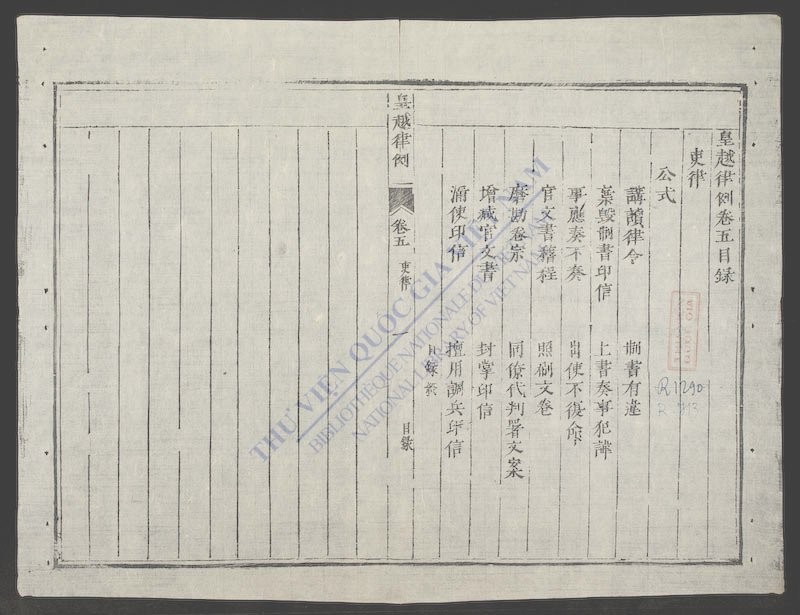 皇越律例卷五目録
吏律
公式
講讀律令 制書有違
棄毀制書印信 上書奏事犯諱
事應奏不奏 出使不復命
官文書稽程 照刷文卷
磨勘卷宗 同僚代判署文案
增减官文書 封掌印信
漏使印信 擅用調兵印信
目録終
皇越律例 卷五 吏律 一 目録
R.1290
THƯ VIỆN QUỐC GIA VIỆT NAM
BIBLIOTHÈQUE NATIONALE DU VIETNAM
NATIONAL LIBRARY OF VIETNAM